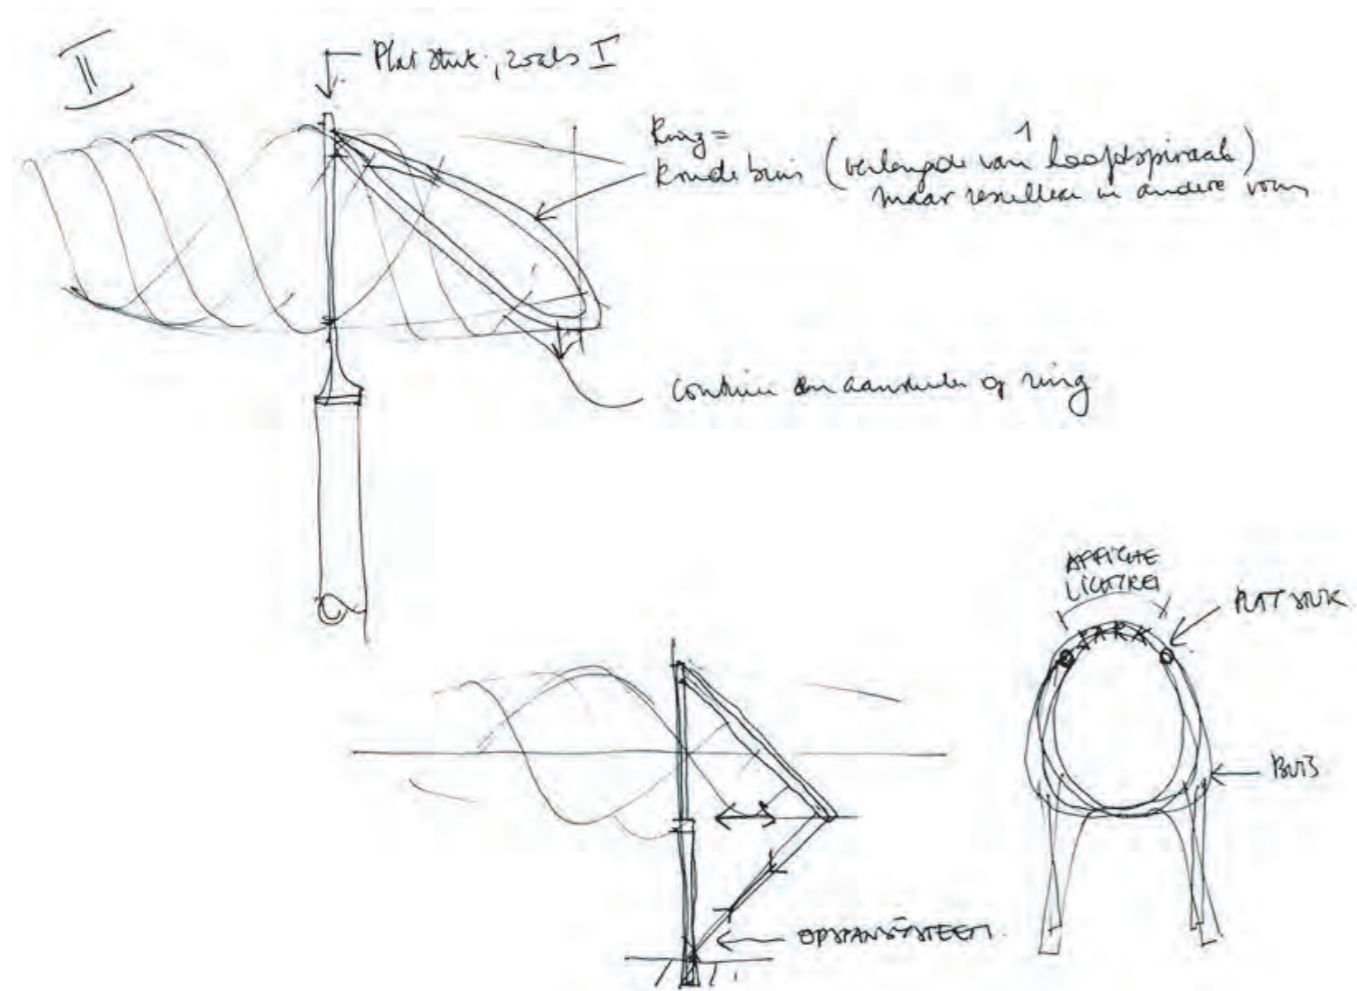 II
Plat stuk, zoals I
Ring =
Ronde buis (verlengde van 1 hoofdspiraal)
maar resulteer in andere vorm
Continu aansluiten op ring
AFFICHE
LICHTREI
PLAT STUK
BUIS
OPSPANSYSTEEM